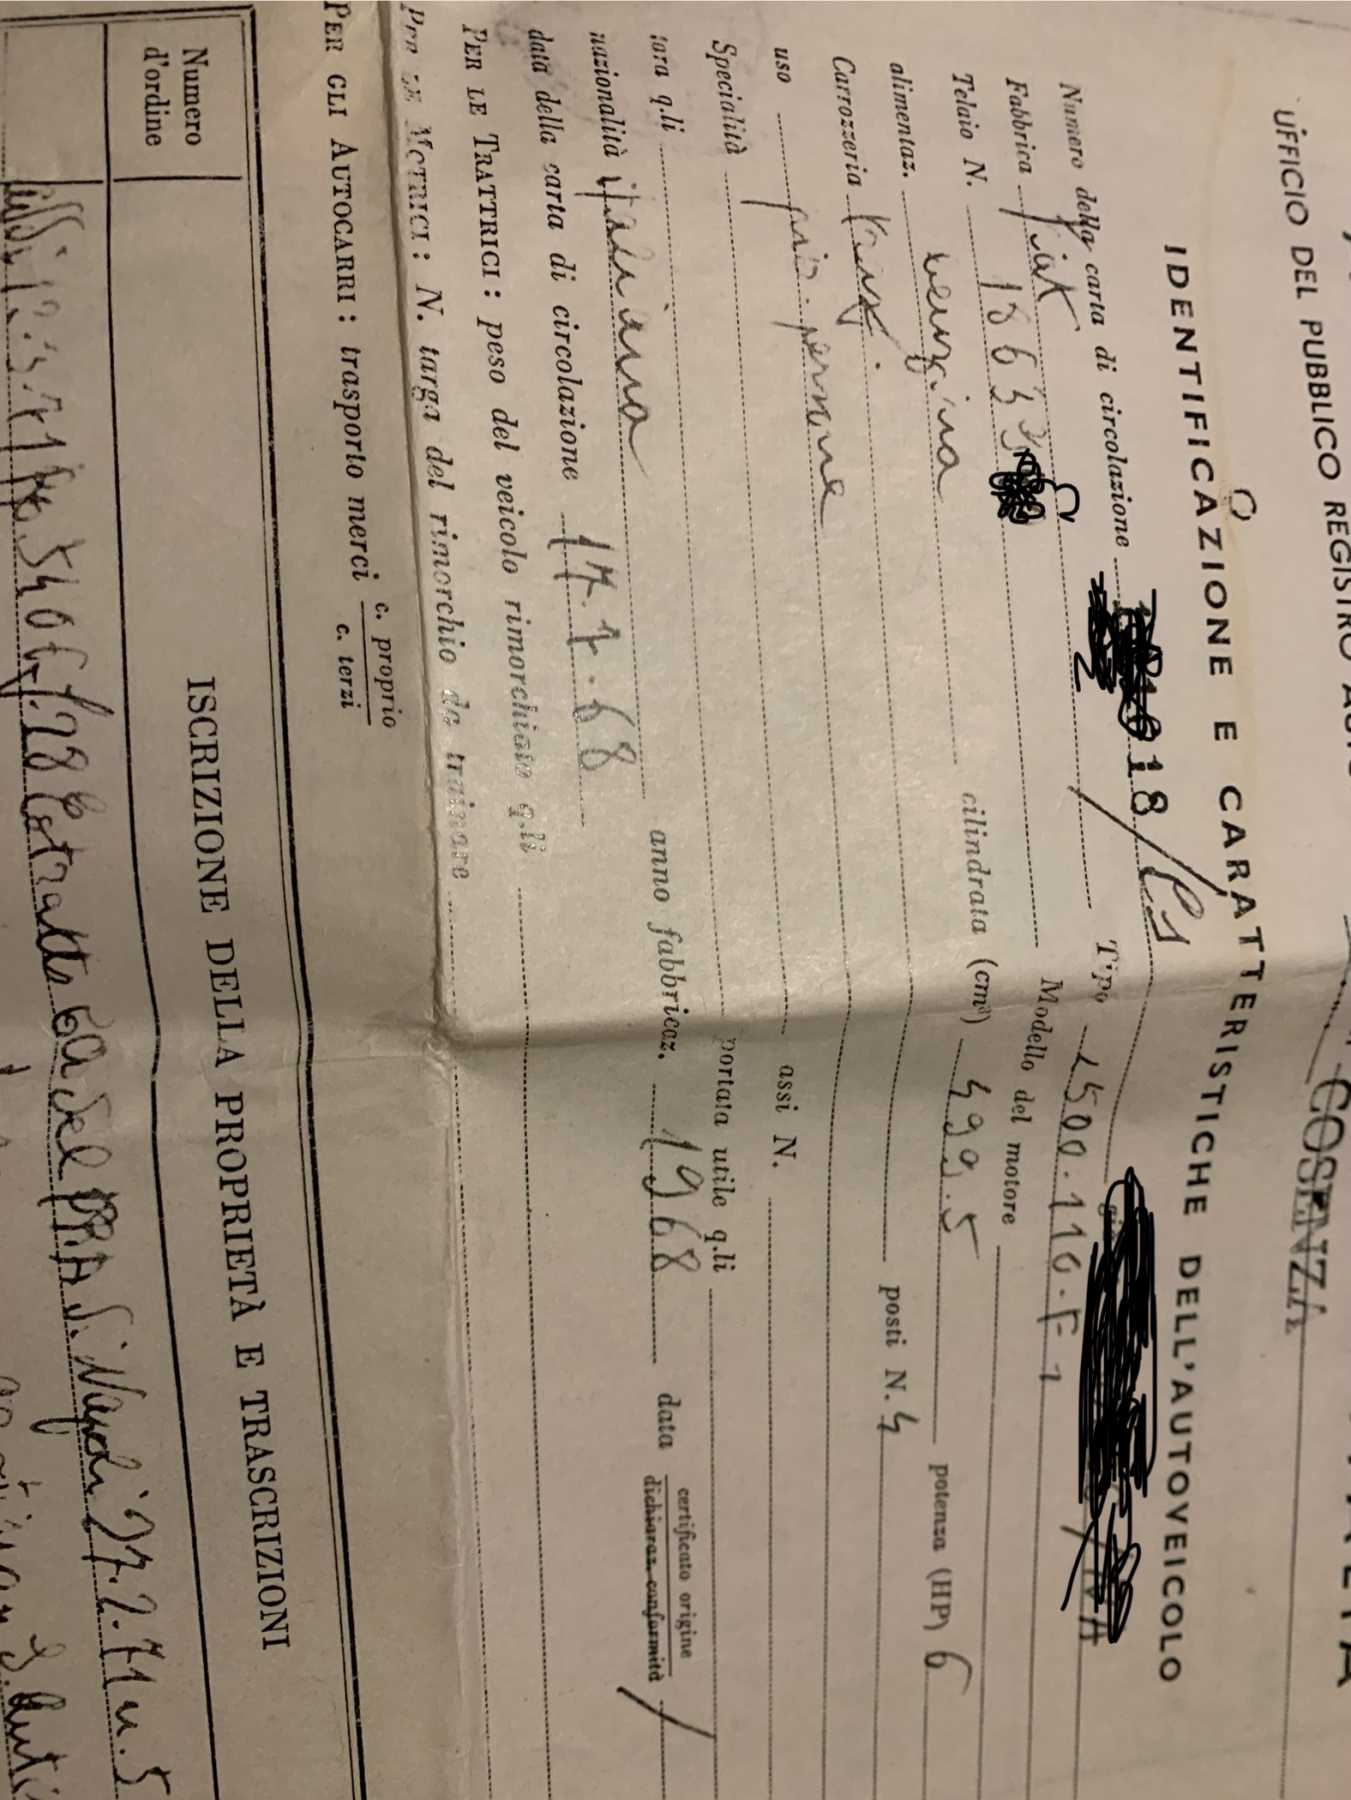 UFFICIO DEL PUBBLICO REGISTRO
COSENZA
IDENTIFICAZIONE E CARATTERISTICHE DELL'AUTOVEICOLO
Numero della carta di circolazione 18/CS
Fabbrica Fiat Tipo 1500.110.F1
Telaio N. 18633 Modello del motore
alimentaz. benzina cilindrata (cm³) 499.5 potenza (HP) 6
Carrozzeria posti N. 4
uso persone
Specialità assi N.
tara q.li portata utile q.li
nazionalità italiana anno fabbricaz. 1968 data certificato origine
dichiaraz. conformità
data della carta di circolazione 17.7.68
PER LE TRATTRICI: peso del veicolo rimorchiato q.li
PER LE MOTRICI: N. targa del rimorchio da trainare
PER GLI AUTOCARRI: trasporto merci c. proprio
c. terzi
Numero d'ordine
ISCRIZIONE DELLA PROPRIETÀ E TRASCRIZIONI
Estratto da del PRA di Napoli 27.2.71 n. 5